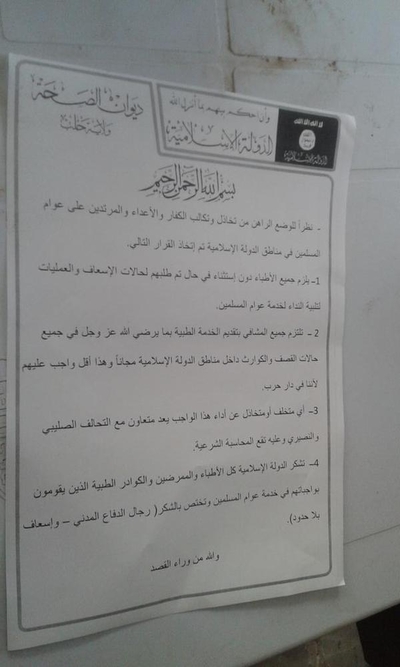 وأن احكم بينهم بما أنزل الله
الدولة الإسلامية
ديوان الصحة
ولاية حلب
لا إله إلا الله
الله
رسول
محمد
الدولة الإسلامية
بسم الله الرحمن الرحيم
- نظراً للوضع الراهن من تخاذل وتكالب الكفار والأعداء والمرتدين على عوام
المسلمين في مناطق الدولة الإسلامية تم إتخاذ القرار التالي.
1- يلزم جميع الأطباء دون إستثناء في حال تم طلبهم لحالات الإسعاف والعمليات
تلبية النداء لخدمة عوام المسلمين.
2 - تلتزم جميع المشافي بتقديم الخدمة الطبية بما يرضي الله عز وجل في جميع
حالات القصف والكوارث داخل مناطق الدولة الإسلامية مجاناً وهذا أقل واجب عليهم
لأننا في دار حرب.
3- أي متخلف أومتخاذل عن أداء هذا الواجب يعد متعاون مع التحالف الصليبي
والنصيري وعليه تقع المحاسبة الشرعية.
4- تشكر الدولة الإسلامية كل الأطباء والممرضين والكوادر الطبية الذين يقومون
بواجباتهم في خدمة عوام المسلمين وتختص بالشكر( رجال الدفاع المدني – وإسعاف
بلا حدود).
والله من وراء القصد